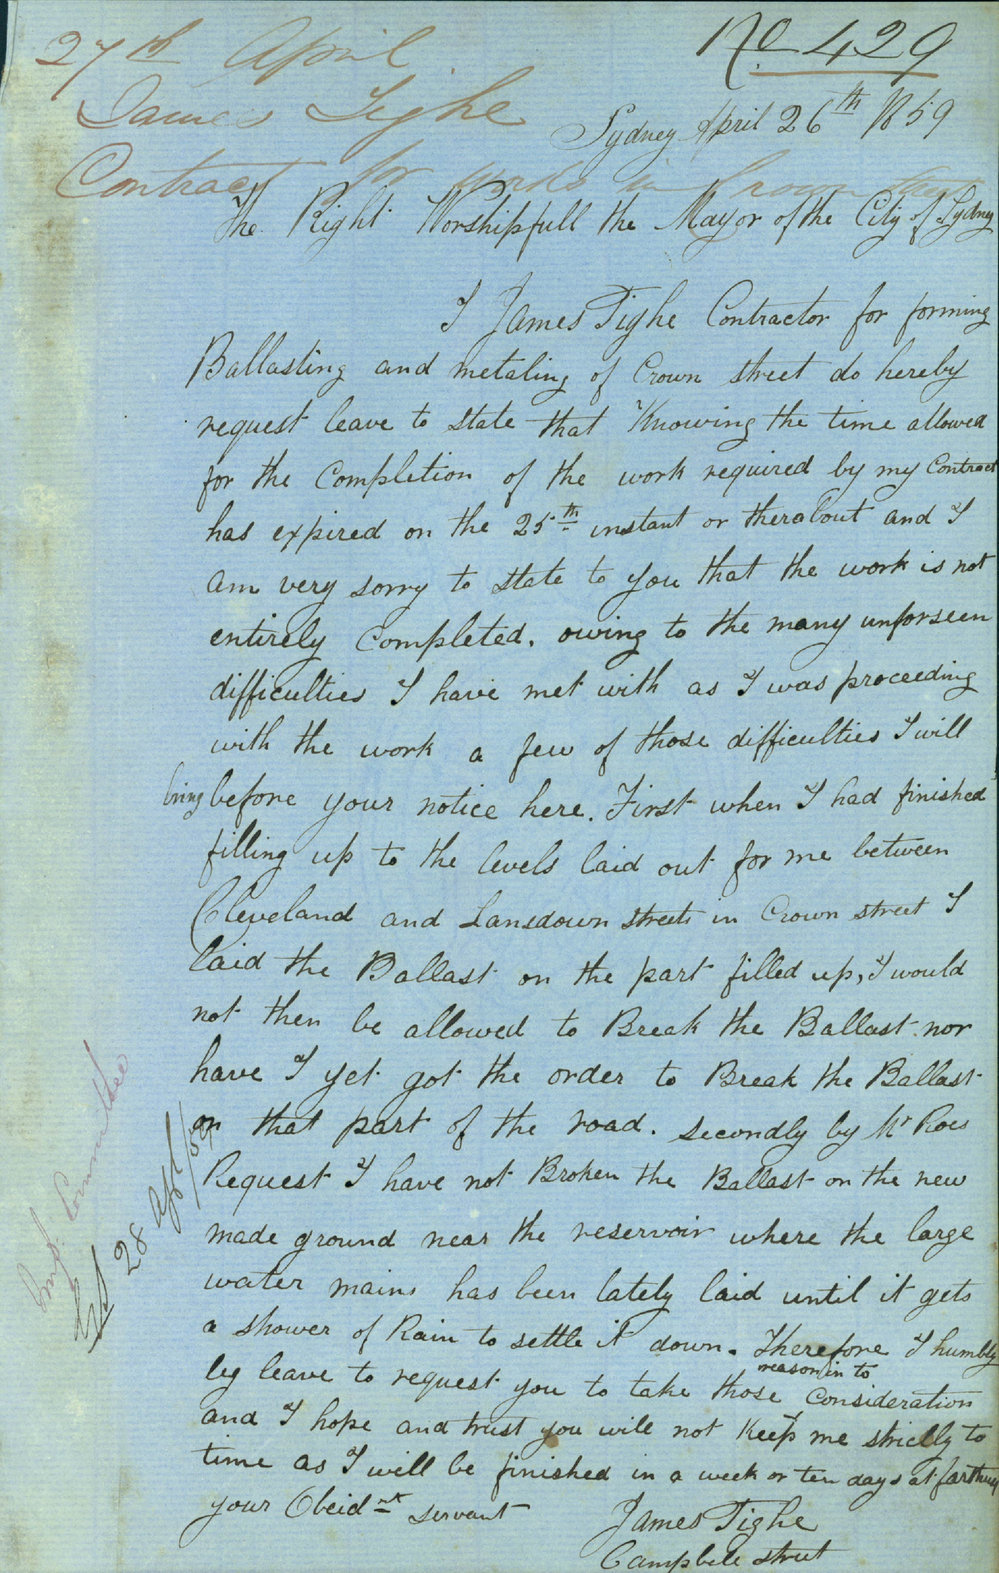 27th April
No 429
James Tighe
Sydney April 26th 1859
Contract for works in Crown
The Right Worshipfull the Mayor of the City of Sydney
I James Tighe Contractor for forming
Ballasting and metaling of Crown street do hereby
request leave to state that Knowing the time allowed
for the Completion of the work required by my Contract
has expired on the 25th instant or therabout and I
am very sorry to state to you that the work is not
entirely Completed. owing to the many unforseen
difficulties I have met with as I was proceeding
with the work a few of those difficulties I will
bring before your notice here. First when I had finished
filling up to the levels laid out for me between
Cleveland and Lansdown streets in Crown street I
laid the Ballast on the part filled up, I would
not then be allowed to Break the Ballast nor
have I yet got the order to Break the Ballast
on that part of the road. secondly by Mr Roes
Request I have not Broken the Ballast on the new
made ground near the reservoir where the large
water mains has been lately laid until it gets
a shower of Rain to settle it down. Therefore I humbly
beg leave to request you to take those reason in to Consideration
and I hope and trust you will not Keep me strictly to
time as I will be finished in a week or ten days at farthest
your Obeidnt servant
James Tighe
Campbele street
Imp. Committee
28 Apl/59